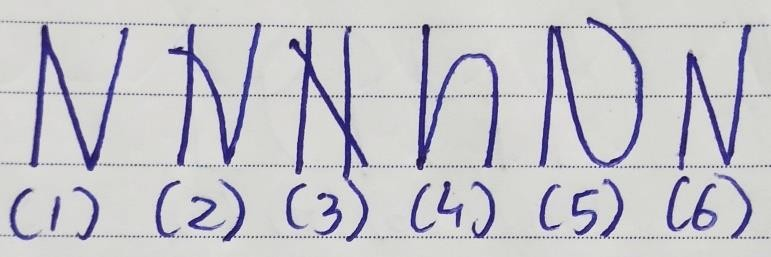 N N N N N N
(1) (2) (3) (4) (5) (6)